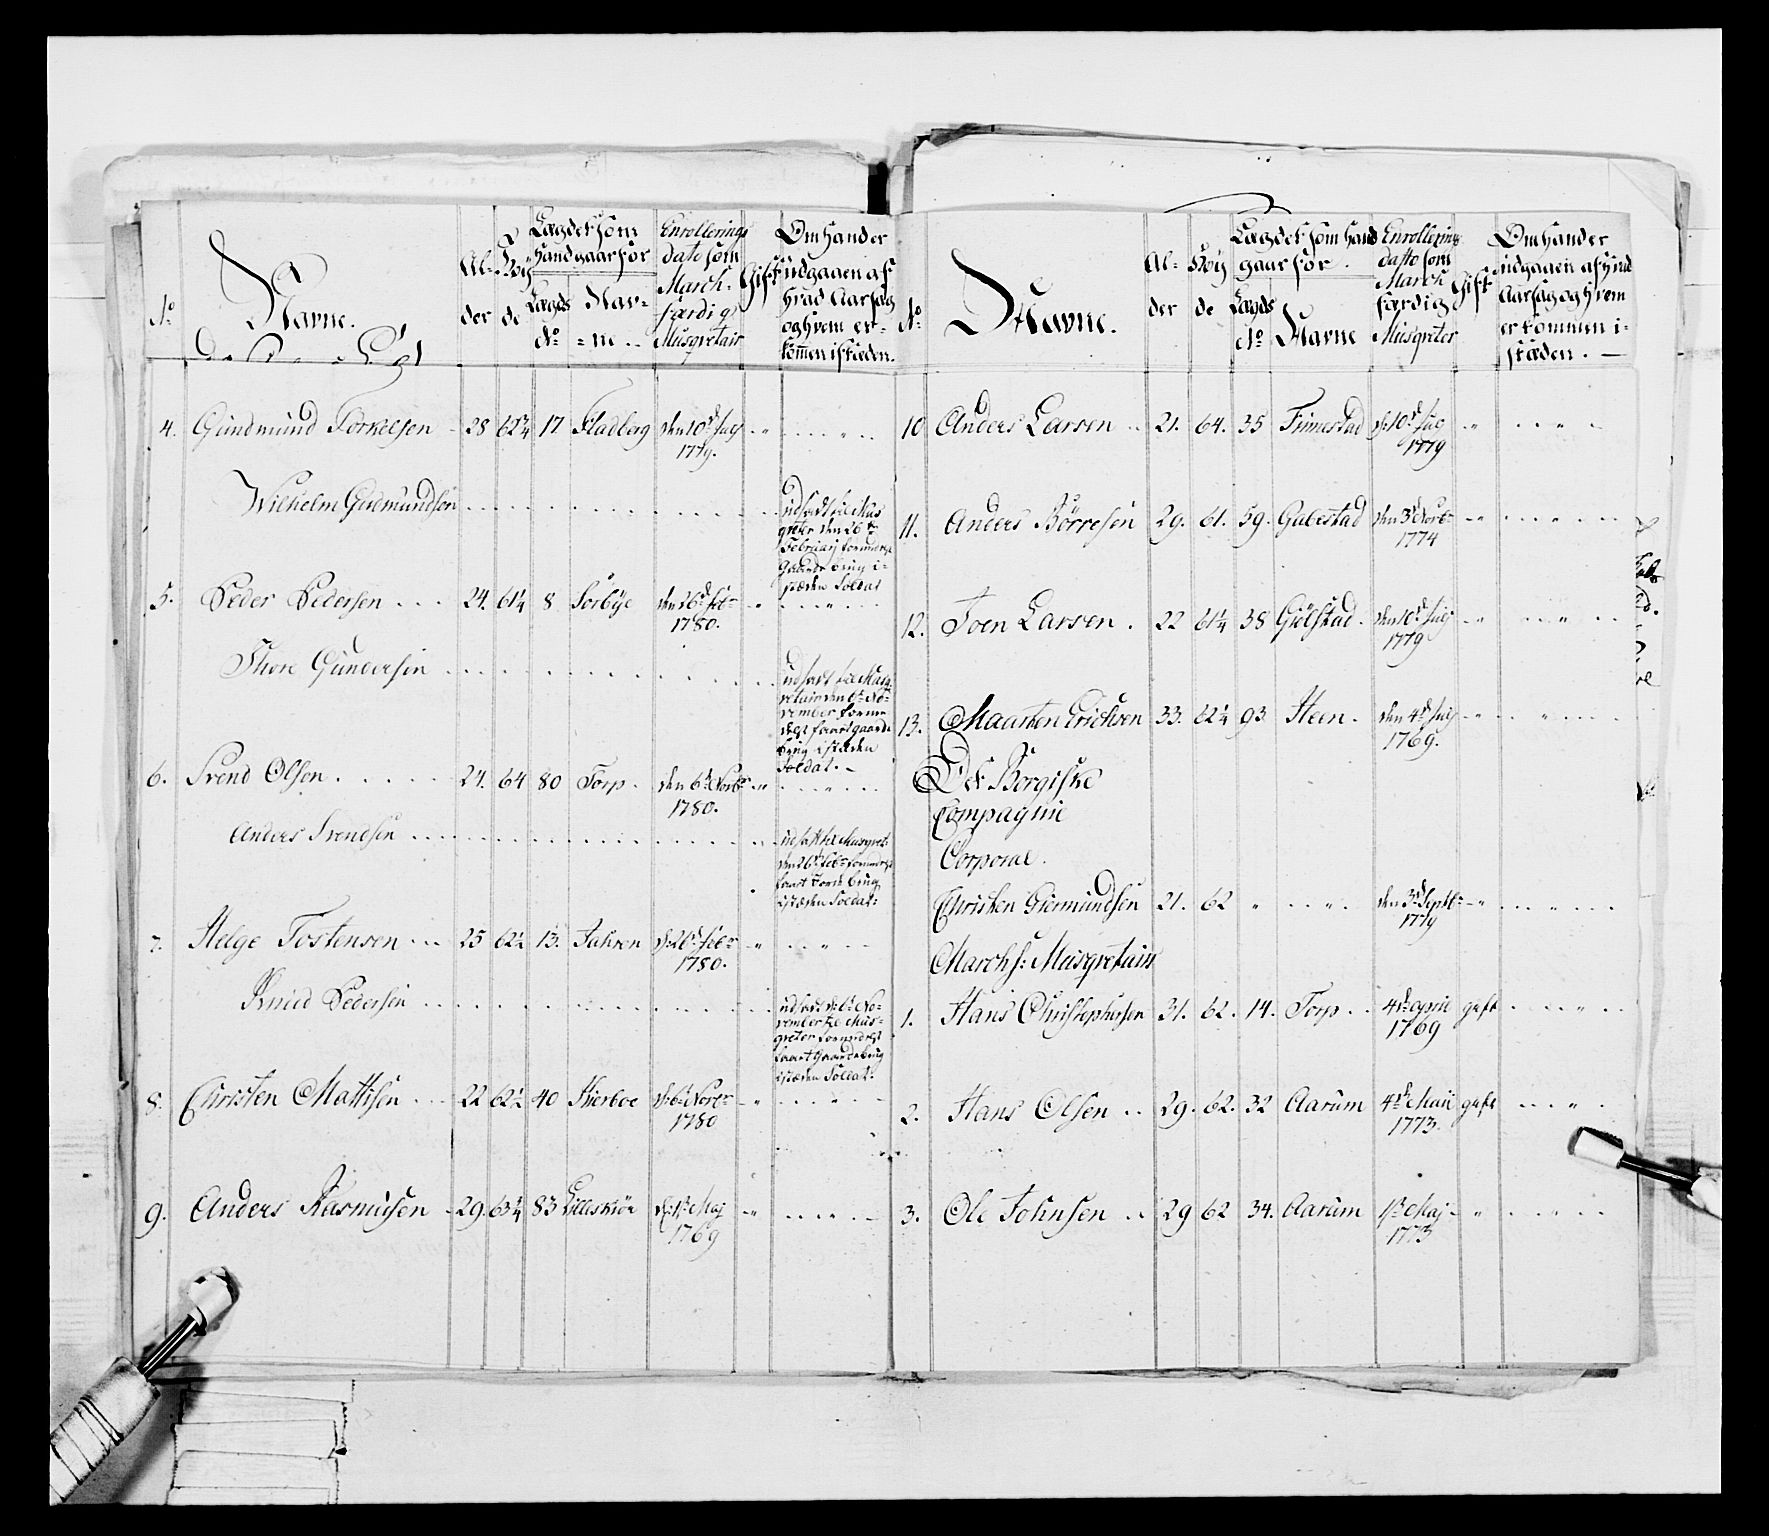 No Navne. Al-der Höy de Lægdet som Hand gaar for Lægds No Nav-ne Enrollerings dato som March-færdig Musqvetair Gift Om Hand er udgaaen af hvad Aarsag og hvem er kommen i stæden.
4. Gundmund Torkelsen 28 62¾ 17 Fladberg den 10d July 1779.
Wilhelm Gudmundsen
udsadt til Mus
qveter den 26te
Februarij formedelst
Gaarde brug i-
stæden Soldat
5. Peder Pedersen 24. 61¼ 8 Sorbÿe den 26d febr 1780.
Thore Gundersen
6. Svend Olsen 24. 64 80 Torp den 6d Novbr 1780.
Anders Svendsen
istæden Soldat:
7. Helge Tostensen 25 62½ 13. Jahren d: 26d febr 1780.
Knud Pedersen
istæden Soldat:
8. Christen Mattisen 22 62½ 40 Skierboe d: 6d Novbr 1780
9. Anders Rasmusen 29. 63¾ 83 Lilleskiör d: 1d Maj 1769
No Navne. Al-der Höy de Lægdet som Hand gaar for Lægds No Navne Enrollering datto som March færdig Musqveter Gift Om Hand er udgaaen af hvad Aarsag og hvem er kommen i-stæden.
10 Anders Larsen 21. 64. 35 Finnestad d: 10d July 1779
11. Anders Börresen 29. 61. 59. Gabestad den 3d Novbr 1774
12. Joen Larsen 22 61¼ 38 Giölstad den 10d July 1779
13. Maarten Erichsen 33. 62¼ 93 Heen den 4d July 1769.
Det Borgiske
Compagnie
Corporal.
Christen Giermundsen 21. 62 den 3d Septbr 1779
Marchf: Musqvetairer
1. Hans Christophersen 31. 62. 14. Torp 4d April 1769 gift
2. Hans Olsen 29. 62. 32 Aarum 4d Maii 1773. gift
3. Ole Johnsen 29 62 34. Aarum 1d Maj 1773